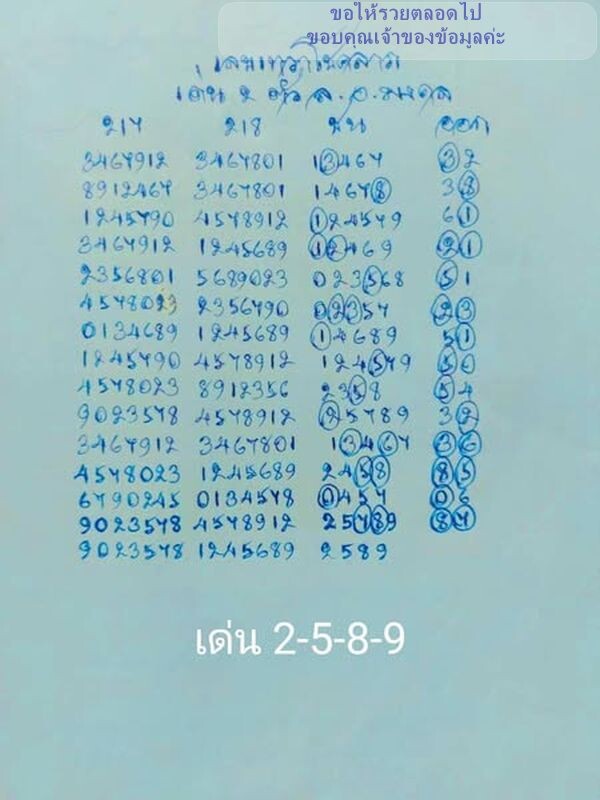 ขอให้รวยตลอดไป
ขอบคุณเจ้าของข้อมูลค่ะ
เด่น 2 ตัว ล.
217 218 ชน ออก
3467912 3467801 13467 32
8912467 3467801 14678 38
1245790 4578912 124579 61
3467912 1245689 12469 21
2356801 5689023 023568 51
4578023 2356790 02357 23
0134689 1245689 14689 51
1245790 4578912 124579 50
4578023 8912356 2358 54
9023578 4578912 25789 32
3467912 3467801 13467 36
4578023 1245689 2458 85
6790245 0134578 0457 06
9023578 4578912 25789 87
9023578 1245689 2589
เด่น 2-5-8-9